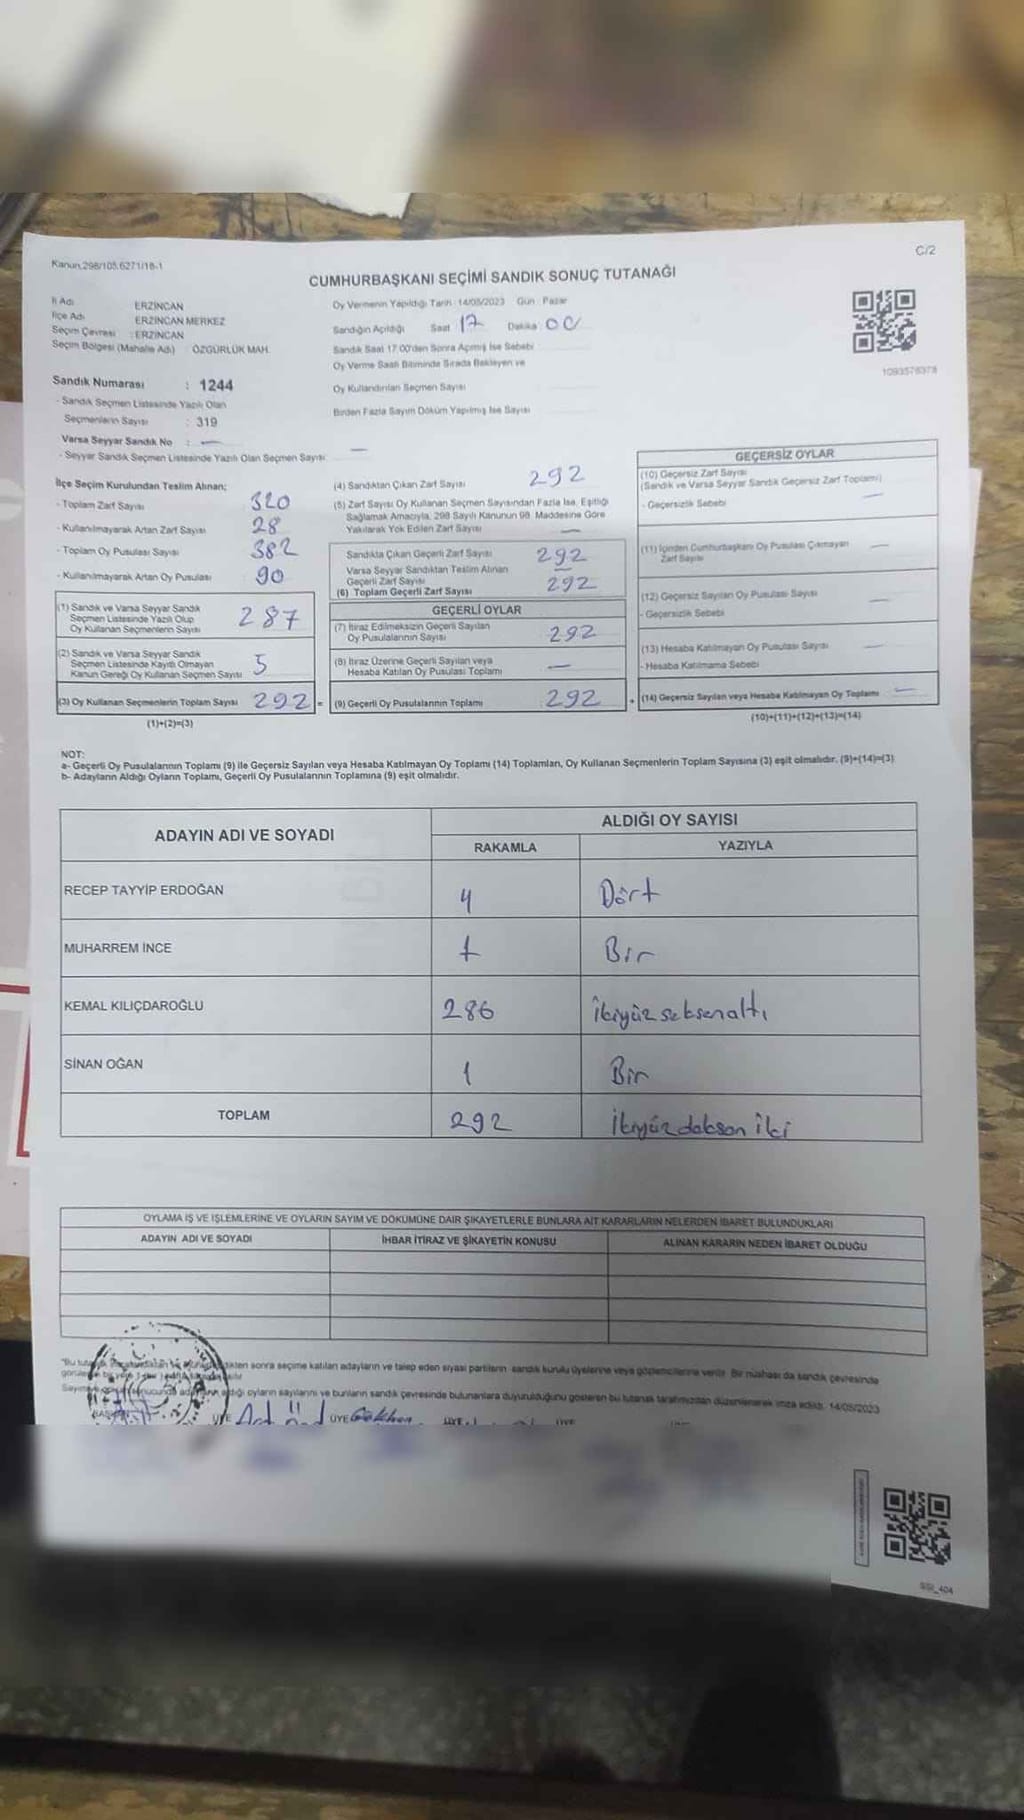 Kanun,298/105,6271/18-1
C/2
CUMHURBAŞKANI SEÇİMİ SANDIK SONUÇ TUTANAĞI
İl Adı ERZİNCAN
İlçe Adı ERZİNCAN MERKEZ
Seçim Çevresi : ERZİNCAN
Seçim Bölgesi (Mahalle Adı) : ÖZGÜRLÜK MAH.
Oy Vermenin Yapıldığı Tarih : 14/05/2023 Gün : Pazar
Sandığın Açıldığı Saat 17 Dakika 00
Sandık Saat 17:00'den Sonra Açılmış İse Sebebi
Oy Verme Saati Bitiminde Sırada Bekleyen ve
Oy Kullandırılan Seçmen Sayısı
Birden Fazla Sayım Döküm Yapılmış İse Sayısı
1093576378
Sandık Numarası : 1244
- Sandık Seçmen Listesinde Yazılı Olan
Seçmenlerin Sayısı : 319
Varsa Seyyar Sandık No : —
- Seyyar Sandık Seçmen Listesinde Yazılı Olan Seçmen Sayısı : —
İlçe Seçim Kurulundan Teslim Alınan;
- Toplam Zarf Sayısı 320
- Kullanılmayarak Artan Zarf Sayısı 28
- Toplam Oy Pusulası Sayısı 382
- Kullanılmayarak Artan Oy Pusulası 90
(1) Sandık ve Varsa Seyyar Sandık
Seçmen Listesinde Yazılı Olup
Oy Kullanan Seçmenlerin Sayısı 287
(2) Sandık ve Varsa Seyyar Sandık
Seçmen Listesinde Kayıtlı Olmayan
Kanun Gereği Oy Kullanan Seçmen Sayısı 5
(3) Oy Kullanan Seçmenlerin Toplam Sayısı 292 =
(1)+(2)=(3)
(4) Sandıktan Çıkan Zarf Sayısı 292
(5) Zarf Sayısı Oy Kullanan Seçmen Sayısından Fazla İse, Eşitliği
Sağlamak Amacıyla, 298 Sayılı Kanunun 98. Maddesine Göre
Yakılarak Yok Edilen Zarf Sayısı —
Sandıkta Çıkan Geçerli Zarf Sayısı 292
Varsa Seyyar Sandıktan Teslim Alınan
Geçerli Zarf Sayısı —
(6) Toplam Geçerli Zarf Sayısı 292
GEÇERLİ OYLAR
(7) İtiraz Edilmeksizin Geçerli Sayılan
Oy Pusulalarının Sayısı 292
(8) İtiraz Üzerine Geçerli Sayılan veya
Hesaba Katılan Oy Pusulası Toplamı —
(9) Geçerli Oy Pusulalarının Toplamı 292 +
GEÇERSİZ OYLAR
(10) Geçersiz Zarf Sayısı
(Sandık ve Varsa Seyyar Sandık Geçersiz Zarf Toplamı) —
- Geçersizlik Sebebi
(11) İçinden Cumhurbaşkanı Oy Pusulası Çıkmayan
Zarf Sayısı —
(12) Geçersiz Sayılan Oy Pusulası Sayısı —
- Geçersizlik Sebebi
(13) Hesaba Katılmayan Oy Pusulası Sayısı —
- Hesaba Katılmama Sebebi
(14) Geçersiz Sayılan veya Hesaba Katılmayan Oy Toplamı —
(10)+(11)+(12)+(13)=(14)
NOT:
a- Geçerli Oy Pusulalarının Toplamı (9) ile Geçersiz Sayılan veya Hesaba Katılmayan Oy Toplamı (14) Toplamları, Oy Kullanan Seçmenlerin Toplam Sayısına (3) eşit olmalıdır. (9)+(14)=(3)
b- Adayların Aldığı Oyların Toplamı, Geçerli Oy Pusulalarının Toplamına (9) eşit olmalıdır.
ADAYIN ADI VE SOYADI
ALDIĞI OY SAYISI
RAKAMLA YAZIYLA
RECEP TAYYİP ERDOĞAN 4 Dört
MUHARREM İNCE 1 Bir
KEMAL KILIÇDAROĞLU 286 İkiyüz seksenaltı
SİNAN OĞAN 1 Bir
TOPLAM 292 İkiyüzdoksan iki
OYLAMA İŞ VE İŞLEMLERİNE VE OYLARIN SAYIM VE DÖKÜMÜNE DAİR ŞİKAYETLERLE BUNLARA AİT KARARLARIN NELERDEN İBARET BULUNDUKLARI
ADAYIN ADI VE SOYADI İHBAR İTİRAZ VE ŞİKAYETİN KONUSU ALINAN KARARIN NEDEN İBARET OLDUĞU
"Bu sonra seçime katılan adayların ve talep eden siyasi partilerin sandık kurulu üyelerine veya gözlemcilerine verilir. Bir nüshası da sandık çevresinde
oyların sayılarını ve bunların sandık çevresinde bulunanlara duyurulduğunu gösteren bu tutanak tarafımızdan düzenlenerek imza edildi. 14/05/2023
ÜYE ÜYE Gökhan ÜYE ÜYE
SSI_404